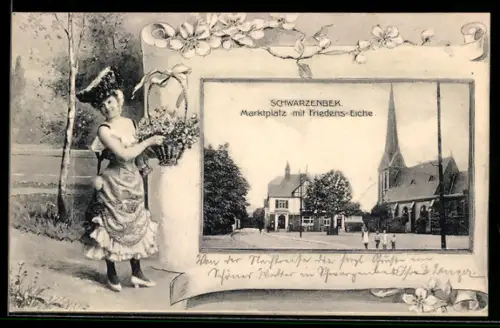 SCHWARZENBEK.
Marktplatz mit Friedens-Eiche
Von der Nachtreise die herzl. Grüsse
Schöner Wetter in Schwarzenbek